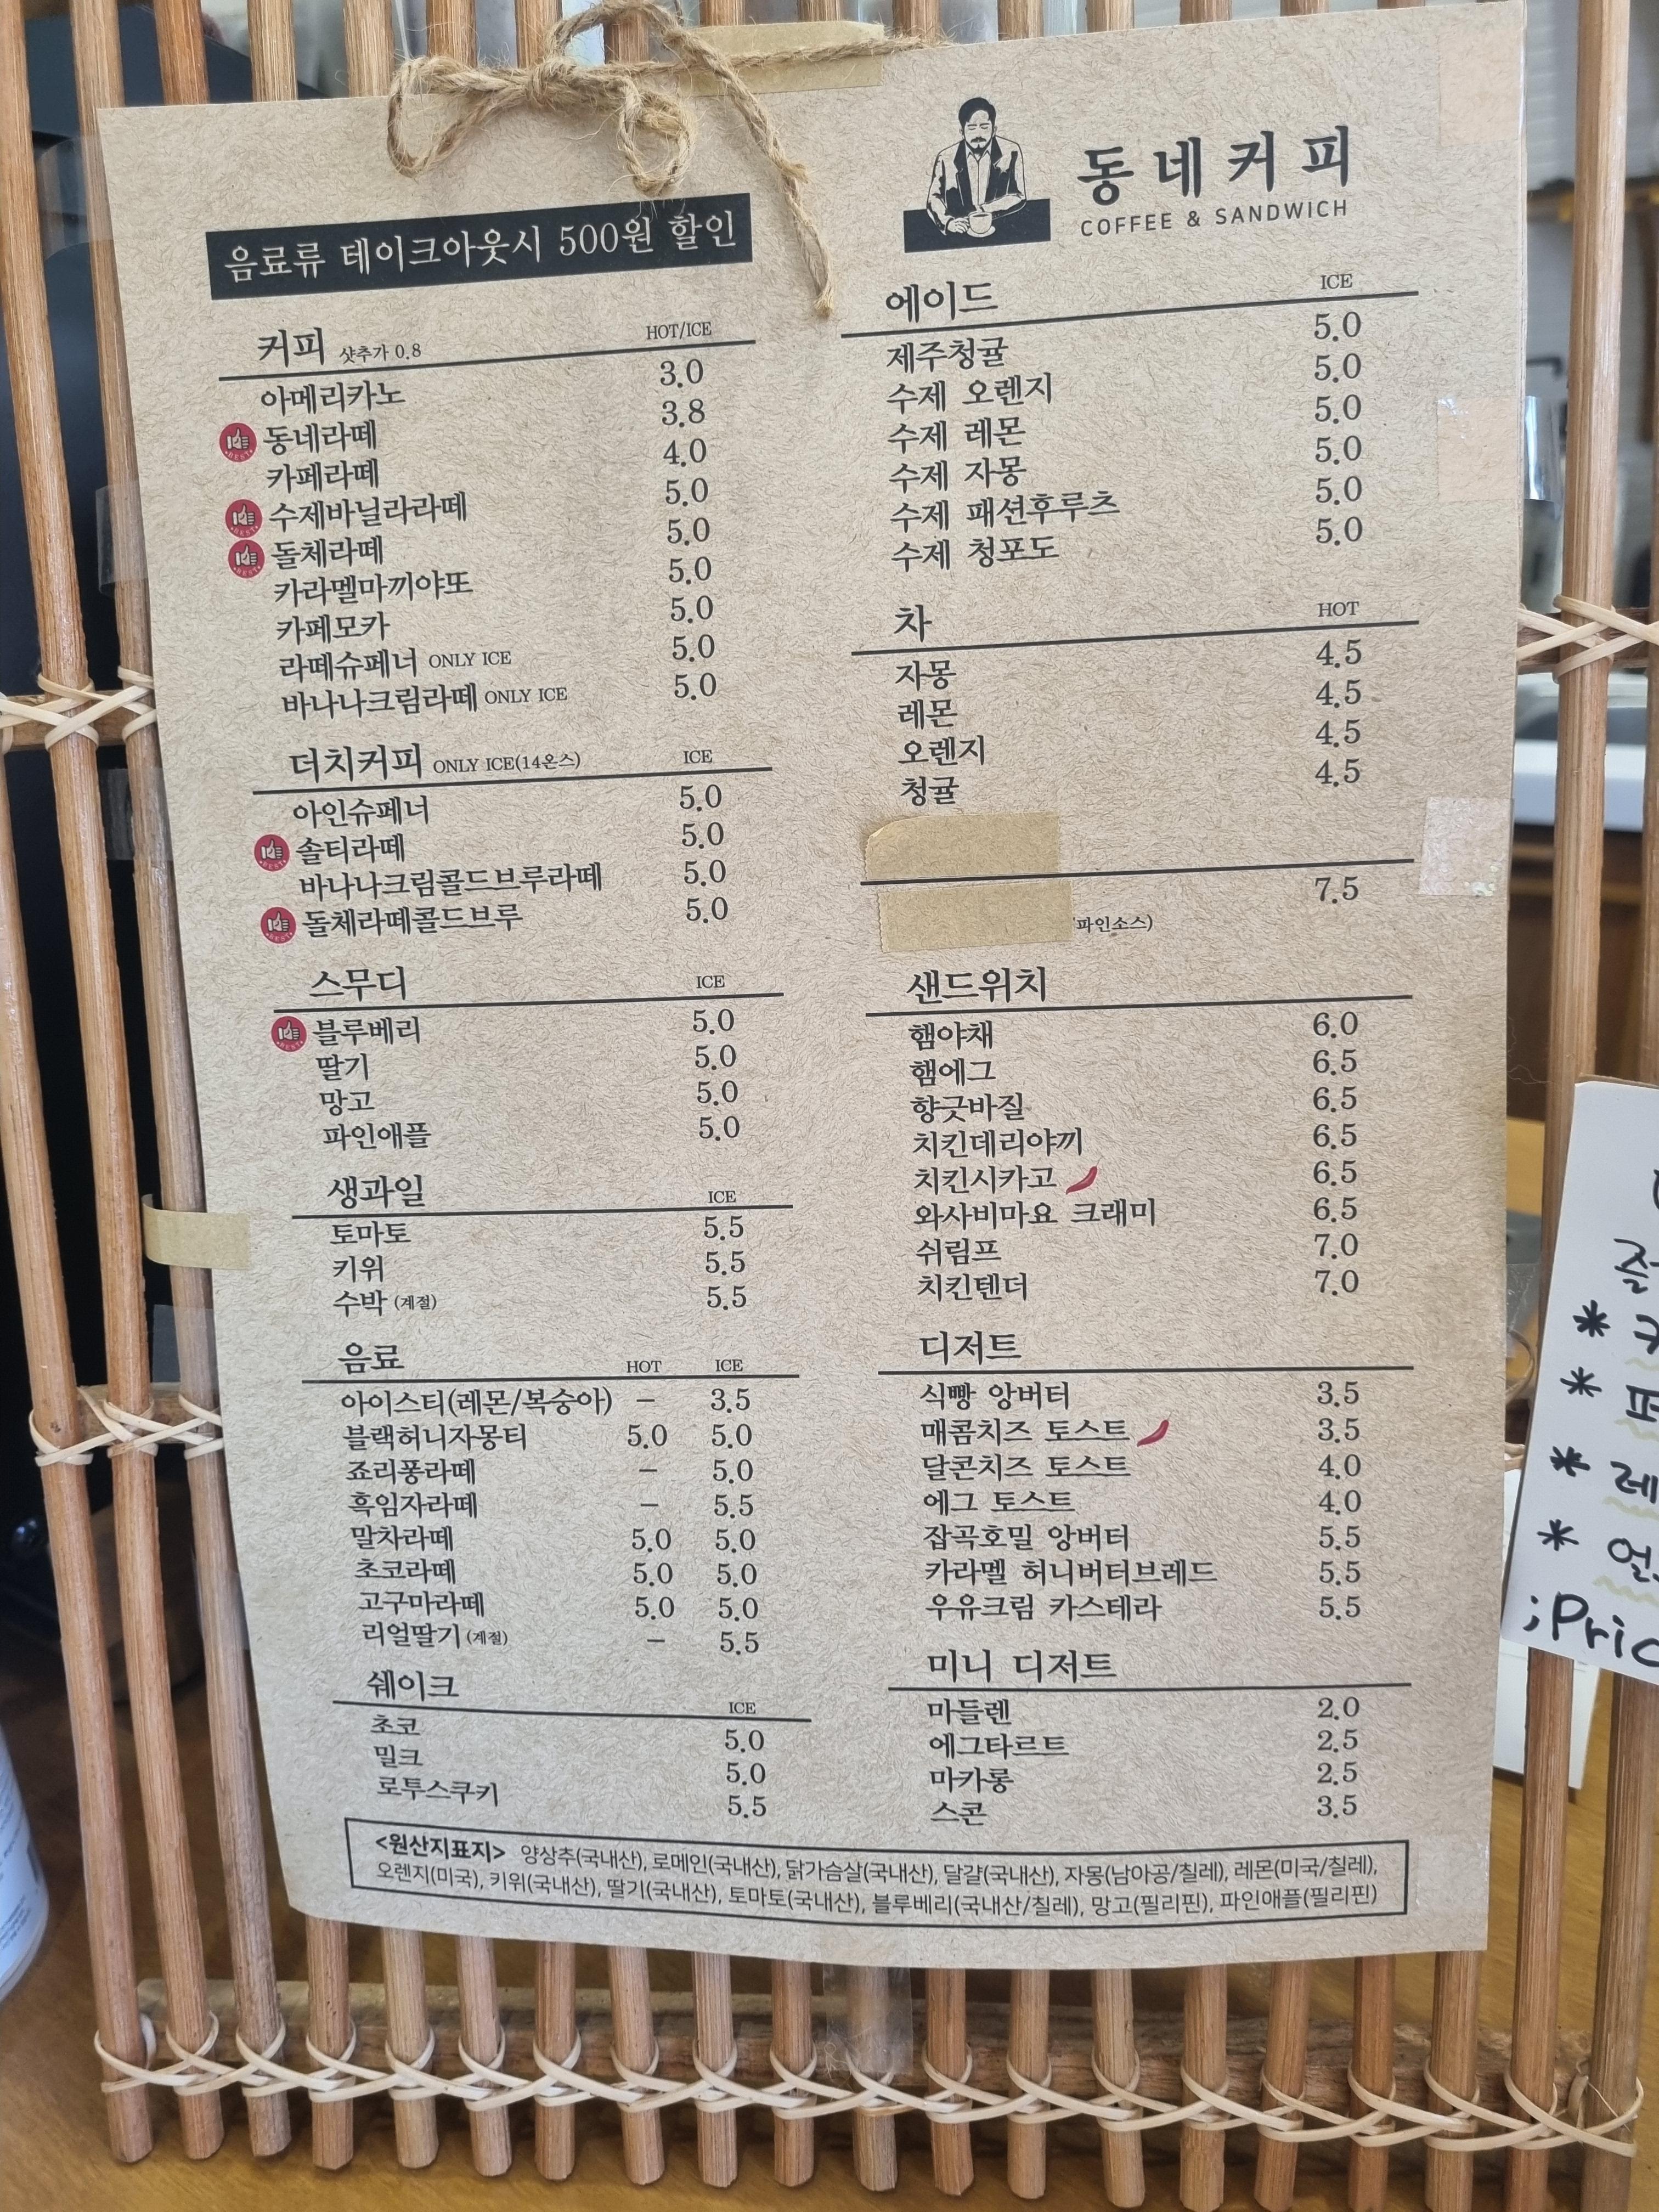 음료류 테이크아웃시 500원 할인
커피 샷추가 0.8 HOT/ICE
아메리카노 3.0
BEST 동네라떼 3.8
카페라떼 4.0
BEST 수제바닐라라떼 5.0
BEST 돌체라떼 5.0
카라멜마끼야또 5.0
카페모카 5.0
라떼슈페너 ONLY ICE 5.0
바나나크림라떼 ONLY ICE 5.0
더치커피 ONLY ICE(14온스) ICE
아인슈페너 5.0
BEST 솔티라떼 5.0
바나나크림콜드브루라떼 5.0
BEST 돌체라떼콜드브루 5.0
스무디 ICE
BEST 블루베리 5.0
딸기 5.0
망고 5.0
파인애플 5.0
생과일 ICE
토마토 5.5
키위 5.5
수박 (계절) 5.5
음료 HOT ICE
아이스티(레몬/복숭아) – 3.5
블랙허니자몽티 5.0 5.0
죠리퐁라떼 – 5.0
흑임자라떼 – 5.5
말차라떼 5.0 5.0
초코라떼 5.0 5.0
고구마라떼 5.0 5.0
리얼딸기 (계절) – 5.5
쉐이크 ICE
초코 5.0
밀크 5.0
로투스쿠키 5.5
동네커피
COFFEE & SANDWICH
에이드 ICE
제주청귤 5.0
수제 오렌지 5.0
수제 레몬 5.0
수제 자몽 5.0
수제 패션후루츠 5.0
수제 청포도 5.0
차 HOT
자몽 4.5
레몬 4.5
오렌지 4.5
청귤 4.5
7.5
파인소스)
샌드위치
햄야채 6.0
햄에그 6.5
향긋바질 6.5
치킨데리야끼 6.5
치킨시카고 6.5
와사비마요 크래미 6.5
쉬림프 7.0
치킨텐더 7.0
디저트
식빵 앙버터 3.5
매콤치즈 토스트 3.5
달콘치즈 토스트 4.0
에그 토스트 4.0
잡곡호밀 앙버터 5.5
카라멜 허니버터브레드 5.5
우유크림 카스테라 5.5
미니 디저트
마들렌 2.0
에그타르트 2.5
마카롱 2.5
스콘 3.5
<원산지표지> 양상추(국내산), 로메인(국내산), 닭가슴살(국내산), 달걀(국내산), 자몽(남아공/칠레), 레몬(미국/칠레),
오렌지(미국), 키위(국내산), 딸기(국내산), 토마토(국내산), 블루베리(국내산/칠레), 망고(필리핀), 파인애플(필리핀)
* 
* 퍼
* 레
* 얼
;Pric